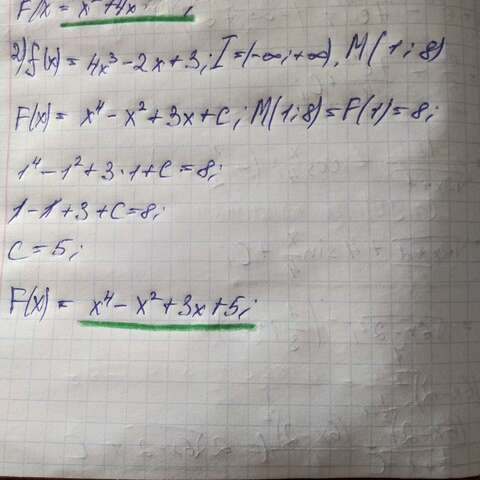 F(x) = x² + 4x
2) f(x) = 4x³ - 2x + 3; I = (-∞; +∞), M(1; 8)
F(x) = x⁴ - x² + 3x + C; M(1; 8) = F(1) = 8;
1⁴ - 1² + 3·1 + C = 8;
1 - 1 + 3 + C = 8;
C = 5;
F(x) = x⁴ - x² + 3x + 5;